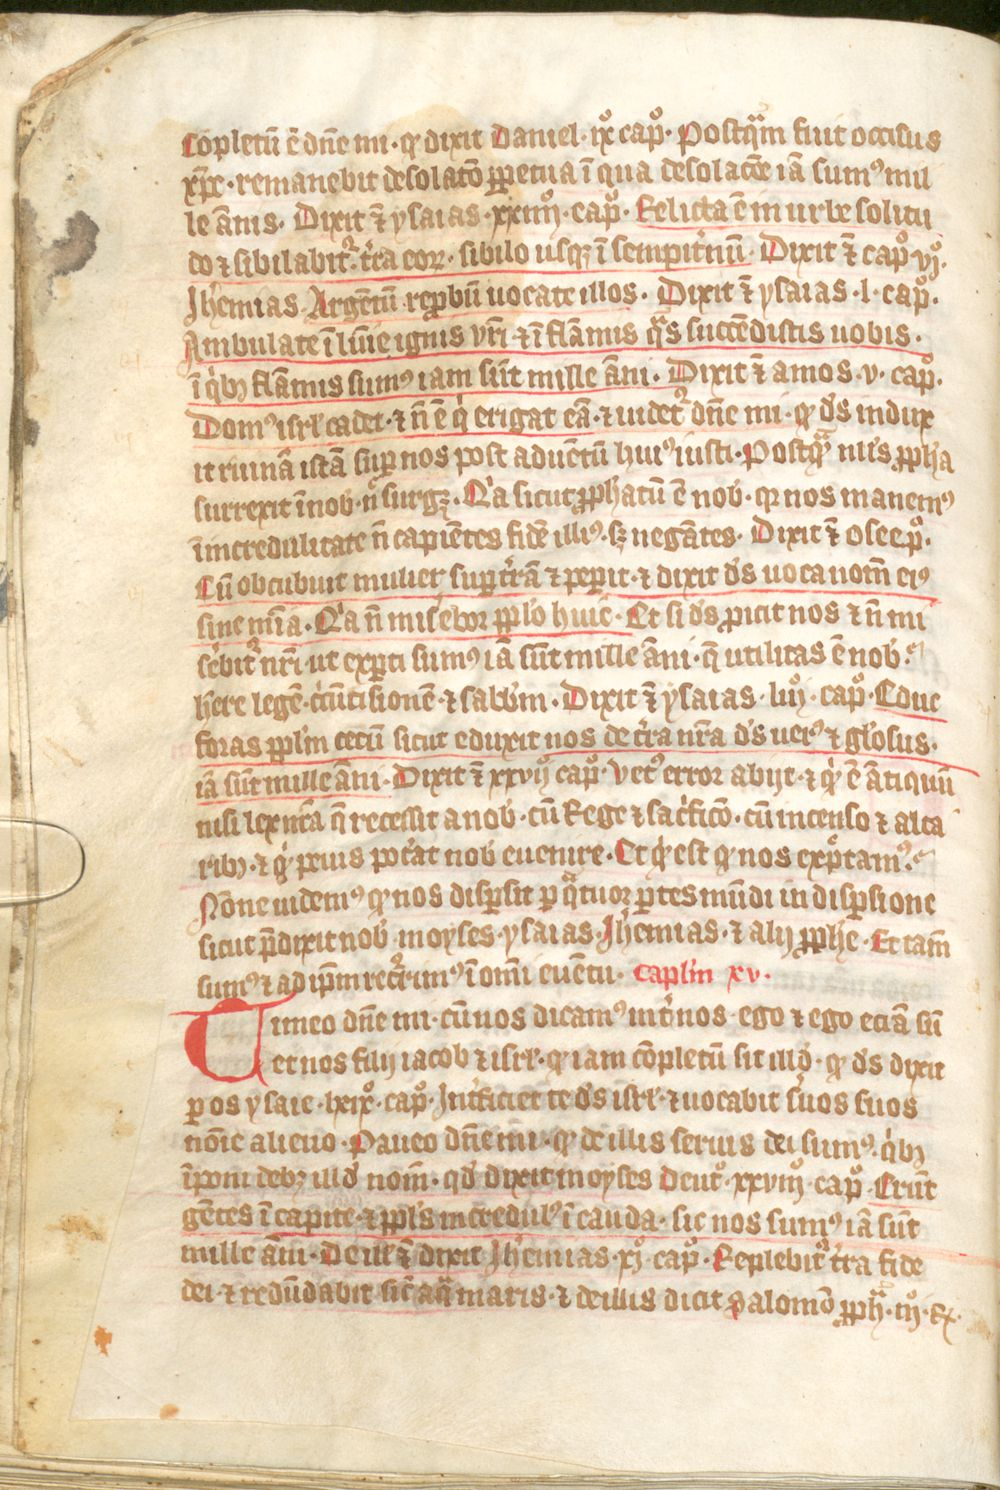 Cōpletū ē dn̄e mi · qꝫ dixit Daniel · ix̊ capͦ · Postqᵃm fuit occisus
xp̄c · remanebit desolatō ꝑpetua ī qua desolac̄oe iā sumꝰ mil
le ānis · Dixit eꝫ̄ ysaias · xxiiijͦ · capͦ · Relicta ē in urbe solitu
do ⁊ sibilabitᷣ tr̄a eoꝝ · sibilo usqꝫ ī sempit̄nū · Dixit eꝫ̄ capͦ vjͦ ·
Jhēmias Argētū rep̱bū uocate illos · Dixit eꝫ̄ ysaias · l · capͦ ·
Ambulate ī lūīe ignis vr̄i ⁊ ī flāmis qᵃs succēdistis uobis ·
ī qⁱbꝫ flāmis sumꝰ iam sūt mille āni · Dixit eꝫ̄ amos · v · capͦ ·
Domꝰ isrl̄ cadet · ⁊ n̄ ē qⁱ erigat eā · ⁊ uidetᷣ dn̄e mi · qꝫ dꝰs indux
it ruinā istā suꝑ nos post aduētū huiꝰ iusti · Postqᵃ̄ nl̄s ꝓpha
surrexit ī nob̄ · n̄ surgꝫ · Qᵃ sicut ꝓphatū ē nob̄ · qꝛ nos manemꝰ
ī incredulitate n̄ capiētes fidē illiꝰ · sꝫ negātes · Dixit eꝫ̄ osee pͦ ·
Cū obcubuit mulier suꝑ tr̄ā ⁊ peꝑit · ⁊ dixit dꝰs uoca nom̄ eiꝰ
sine mīa · Qᵃ n̄ mis̄ebor ppl̄o huic · Et si dꝰs ꝓicit nos ⁊ n̄ mi
s̄ebitᷣ nr̄i ut exꝑti sumꝰ iā sūt mille āni · q̄ utilitas ē nob̄ ·
h̄ere legē · c̄cūcisionē ⁊ sabb̄m · Dixit eꝫ̄ ysaias · liijͦ · capͦ · Educ
foras ppl̄m cecū sicut eduxit uos de tr̄a nr̄a dꝰs uerꝰ ⁊ gl̄osus ·
iā sūt mille āni · Dixit eꝫ̄ xxvijͦ capͦ · Vetꝰ error abijt · ⁊ qⁱd̄ ē ātiquū
nisi lex nr̄a q̄ recessit a nob̄ · cū Rege ⁊ sac̄ficō · cū incenso ⁊ alta
ribꝫ · ⁊ qⁱd̄ peius pot̄at nob̄ euenire · Et qⁱd̄ est qꝫ nos expᵉtamꝰ
Nōne uidemꝰ qꝫ nos disꝑsit ꝑ qᵃtuor ꝑtes mūdi in disꝑsione
sicut p̄dixit nob̄ moyses · ysaias · Jhēmias · ⁊ alij ꝓphe · Et tam̄
sumꝰ ⁊ ad ip̄m rec̄rimꝰ ī omī euētu · Capl̄m xv ·
Timeo dn̄e mi · cū nos dicamꝰ int̄ nos · ego ⁊ ego eciā sū
et nos filij iacob ⁊ isrl̄ · qꝫ iam cōpletū sit illd̄ · qꝫ dꝰs dixit
ꝑ os ysaie · lxixͦ · capͦ · Int̄ficiet te dꝰs isrl̄ · ⁊ uocabit s̄uos suos
nōīe alieno · Paueo dn̄e mi · qꝫ de illis seruis dei sumꝰ qⁱbꝫ
īponi debꝫ illd̄ nom̄ · qd̄ dixit moyses Deutͦ · xxviijͦ · capͦ · Erūt
gētes ī capite · ⁊ ppl̄s incredulꝰ ī cauda · sic nos sumꝰ iā sūt
mille āni · De ill̄ eꝫ̄ dixit Jhēmias · xjͦ · capͦ · Replebitᷣ tr̄a fide
dei · ⁊ redūdabit sic̄ aqᵃ maris · ⁊ de illis dicit Salomō ꝓphᵃ · iijͦ · R̄ ·